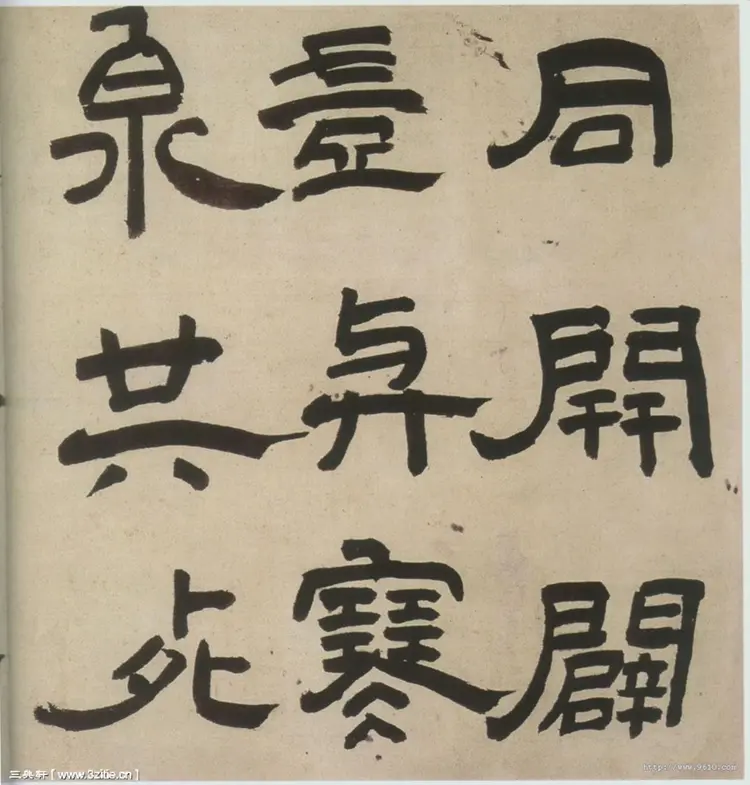 同開闢
與寒
泉共
三典轩【www.3zitie.cn】
http://www.9610.com